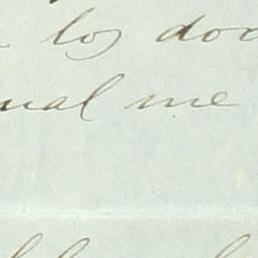 los doc
ual me